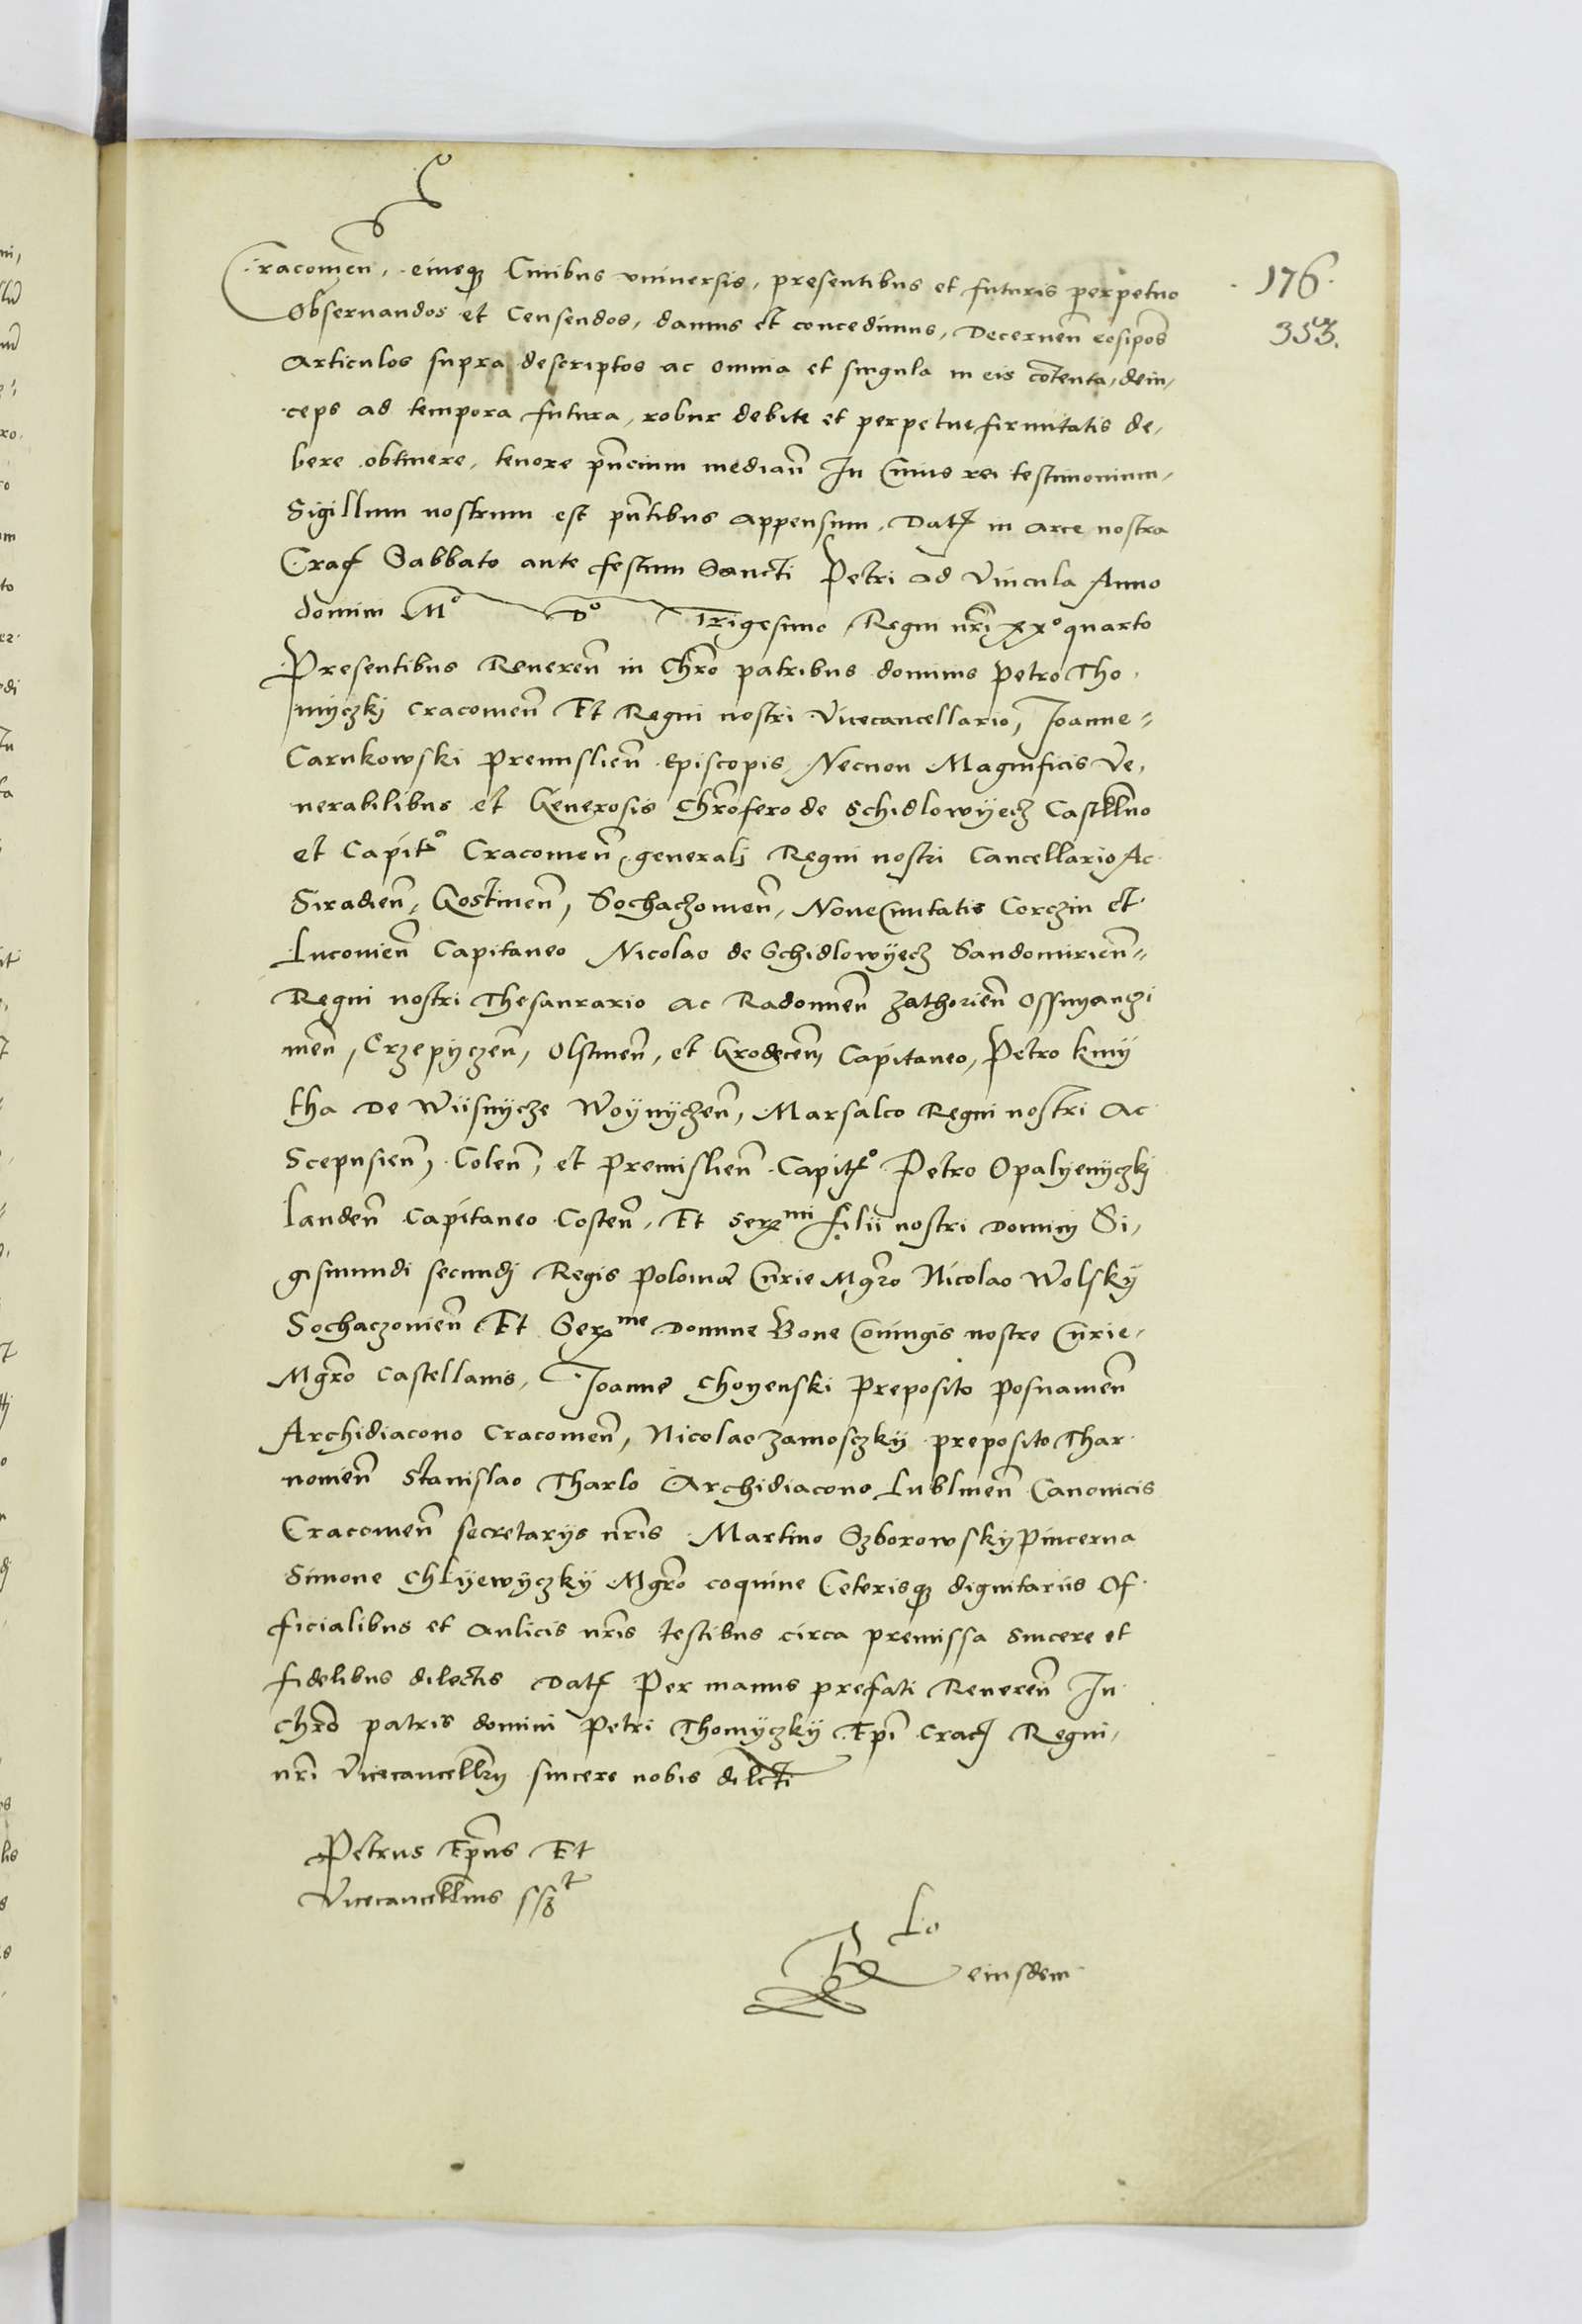 Cracouien̄, eiusq̢ Ciuibus vniuersis, presentibus et futuris perpetuo
176.
Obseruandos et Censendos, damus et concedimus, Decernen̄ eosip̄os
353.
Articulos supra descriptos ac omnia et singula in eis cōtenta, dein,
ceps ad tempora futura, robur debite et perpetue firmitatis de,
bere obtinere, tenore pn̄cium median̄ In Cuius rei testimonium,
Sigillum nostrum est pn̄tibus appensum. Datꝭ in arce nostra
Cracꝭ Sabbato ante festum Sancti Petri ad Vincula Anno
domini Mº Dº Trigesimo Regni nr̄i xxº quarto
Presentibus Reueren̄ in Chr̄o patribus dominis Petro Tho,
myczkj Cracouien̄ Et Regni nostri Vicecancellario, Joanne=
Carnkowski Premislien̄ Episcopis Necnon Magnificis Ve,
nerabilibus et Generosis Chr̄ofero de Schidlowyecz Castll̄no
et Capitº Cracouien̄, generalj Regni nostri Cancellario Ac
Siradien̄, Gostinen̄, Sochaczouien̄, Noue Ciuitatis Corczin et
Lucouien̄ Capitaneo Nicolao de Schidlowyecz Sandomirien̄=
Regni nostri Thesaurario ac Radomien̄ Zathorien̄ Ossvyanczi
men̄, Crzepyczen̄, Olstinen̄, et Grodecen̄, Capitaneo, Petro kmy
tha De Wiisnycze Woynyczen̄, Marsalco Regni nostri Ac
Scepusien̄, Colen̄, et Premislien̄ Capitꝭº Petro Opalyenyczkj
Landen̄ Capitaneo Costen̄, Et Serᵐⁱ filii nostri Dominj Si,
gismundi secundj Regis Polonie Curie Mgr̄o Nicolao Wolsky
Sochaczouien̄ Et Serᵐᵉ Domine Bone Coniugis nostre Curie,
Mgr̄o Castellanis, Joanne Choyenski Preposito Posnanien̄
Archidiacono Cracouien̄, Nicolao Zamosczky preposito Thar
nouien̄ Stanislao Tharlo Archidiacono Lublinen̄ Canonicis
Cracouien̄ secretarys nr̄is Martino Szborowsky Pincerna
Simone Chlyewyczky Mgr̄o coquine Ceterisq̢ dignitariis Of
ficialibus et Aulicis nr̄is testibus circa premissa sincere et
fidelibus dilectis Datꝭ Per manus prefati Reueren̄ In
Chr̄o patris domini Petri Thomyczky Ep̄i Cracꝭ Regni,
nr̄i Vicecancellr̄y sincere nobis dilcti
Petrus Ep̄us Et
Vicecancellr̄ius sszᵗ
Lo
eiusdem